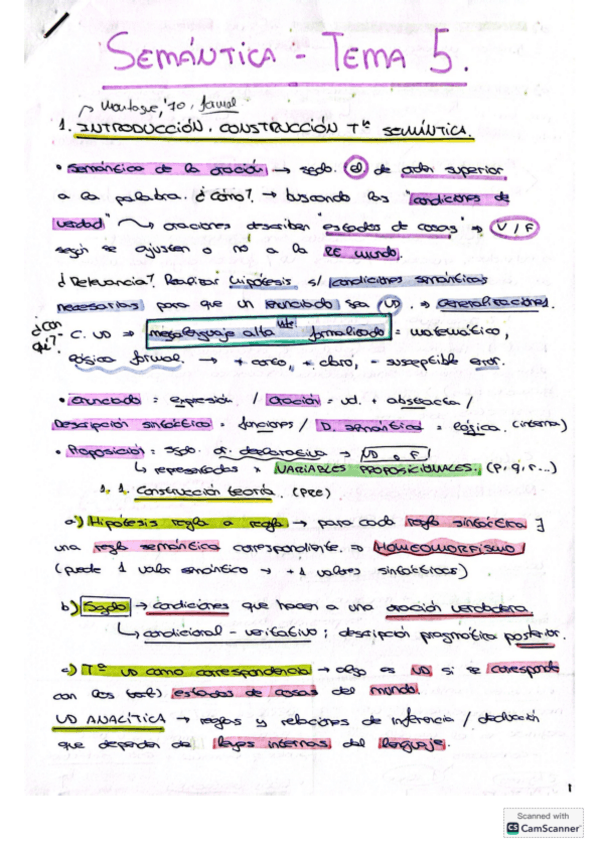 SEMÁNTICA - TEMA 5.
Montague, '70, formal
1. INTRODUCCIÓN. CONSTRUCCIÓN Tª SEMÁNTICA.
• Semántica de la oración → sgdo. el de orden superior
a la palabra. ¿Cómo? → buscando las "condiciones de
verdad" → oraciones describen "estados de cosas" → V/F
según se ajusten o no a la RE mundo.
¿Relevancia? Realizar hipótesis s/ condiciones semánticas
necesarias para que un enunciado sea VD. → Generalizaciones.
¿Con qué?
- C. VD ⇒ metalenguaje alta formalizado = matemático,
lógica formal. → + corto, + claro, - susceptible error.
• Enunciado = expresión / Oración = ud. + abstracta /
Descripción sintáctica = funciones / D. semántica = lógica. (interna)
• Proposición = sgdo. or. declarativa → VD o F
↳ representadas x VARIABLES PROPOSICIONALES. (p, q, r...)
1. 1. Construcción teoría. (PRE)
a) Hipótesis regla a regla → para cada regla sintáctica ∃
una regla semántica correspondiente. ⇒ HOMEOMORFISMO
(puede 1 valor semántico → +1 valores sintácticos)
b) Sgdo → condiciones que hacen a una oración verdadera.
↳ condicional - veritativo; descripción pragmática posterior.
c) Tª VD como correspondencia → algo es VD si se corresponde
con los estados de cosas del mundo.
VD ANALÍTICA → reglas y relaciones de inferencia / deducción
que dependen de leyes internas del lenguaje.
1
Scanned with
CS CamScanner